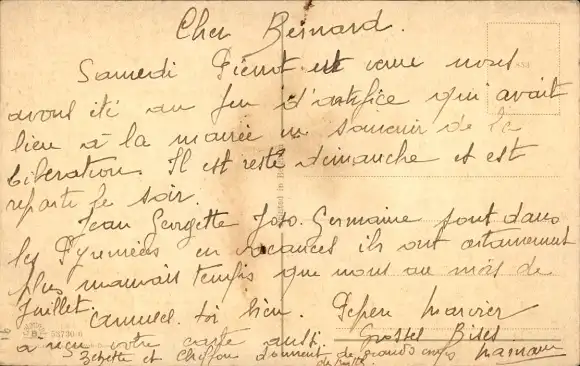 Cher Bernard.
Samedi Pierrot est venu nous
avons été au feu d'artifice qui avait
lieu à la mairie en souvenir de la
liberation. Il est resté dimanche et est
reparti le soir.
Jean Georgette Joso. Germaine sont dans
les Pyrennées en vacances ils ont certainement
plus mauvais temps que nous au mois de
Juillet.
amuses toi bien. Pepere Marvier
a reçu votre carte aussi. Grosses Bises
Zezette et Chiffon donnent de grands coups
de patte. Maman
53730